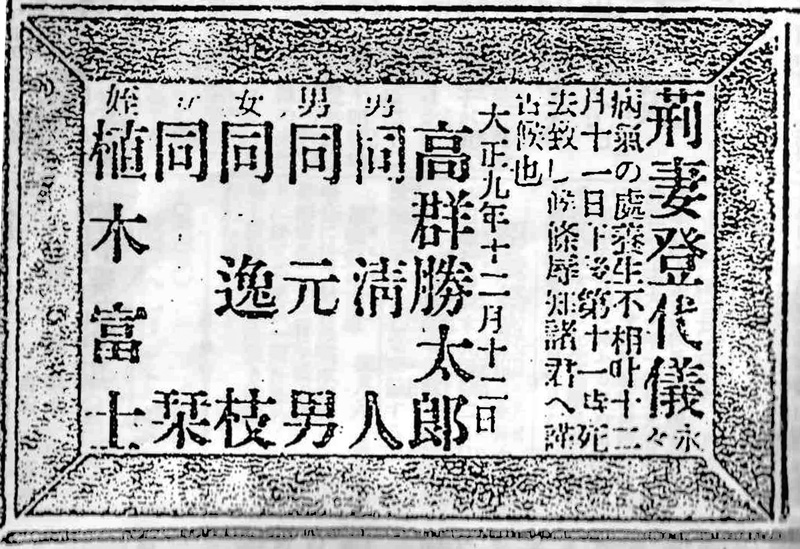 荊妻登代儀永々
病氣の處養生不相叶十二
月十一日下後第十一時死
去致し候條辱知諸君へ謹
告候也
大正九年十二月十二日
高群勝太郎
男 同 清人
男 同 元男
女 同 逸枝
女 同 栞
姪 植木富士